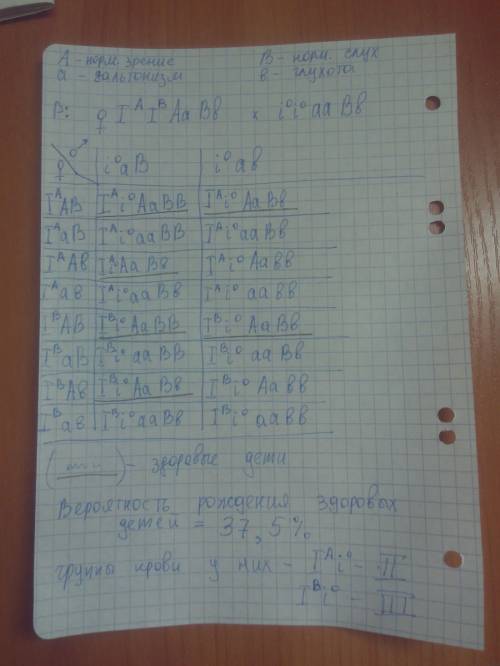 A - норм. зрение B - норм. слух
a - дальтонизм в - глухота
P: ♀ I^A I^B Aa Bв x i^o i^o aa Bв
♀ ♂ i^o aB i^o aв
I^A AB I^A i^o AaBB I^A i^o AaBв
I^A aB I^A i^o aaBB I^A i^o aaBв
I^A Aв I^A i^o AaBв I^A i^o Aaвв
I^A aв I^A i^o aaBв I^A i^o aaвв
I^B AB I^B i^o AaBB I^B i^o AaBв
I^B aB I^B i^o aaBB I^B i^o aaBв
I^B Aв I^B i^o AaBв I^B i^o Aaвв
I^B aв I^B i^o aaBв I^B i^o aaвв
- здоровые дети
Вероятность рождения здоровых
детей = 37,5%
группы крови у них - I^A i^o - II
I^B i^o - III